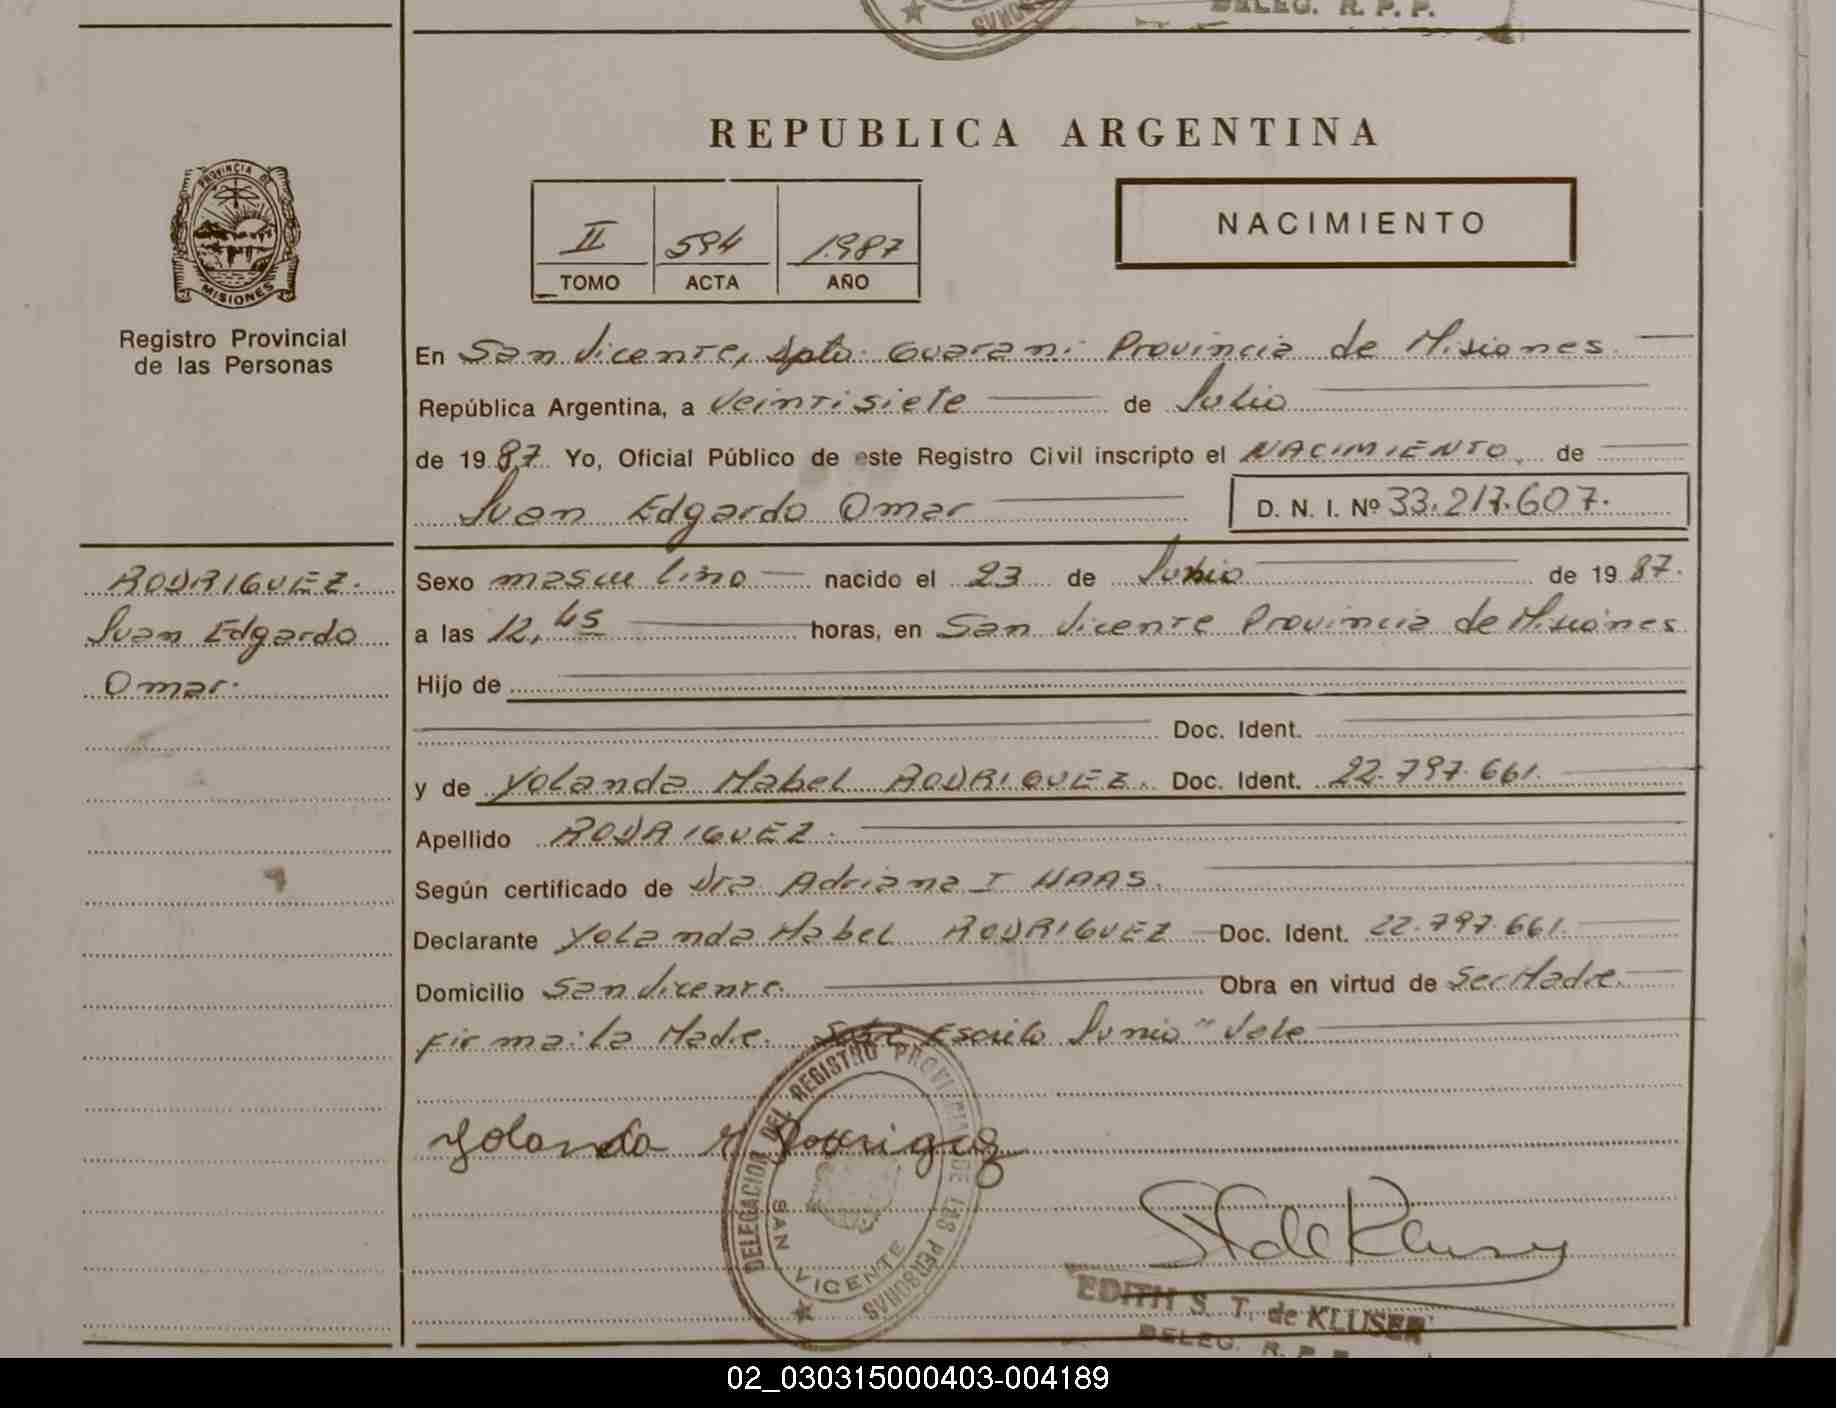 DELEG. R. P. P.
REPUBLICA ARGENTINA
PROVINCIA DE
MISIONES
Registro Provincial
de las Personas
II 594 1987
TOMO ACTA AÑO
NACIMIENTO
En San Vicente, Dpto. Guarani Provincia de Misiones.
República Argentina, a veintisiete de Julio
de 1987 Yo, Oficial Público de este Registro Civil inscripto el NACIMIENTO, de
Juan Edgardo Omar
D. N. I. Nº 33.217.607.
RODRIGUEZ.
Juan Edgardo
Omar.
Sexo masculino nacido el 23 de Junio de 1987.
a las 12,45 horas, en San Vicente Provincia de Misiones
Hijo de
Doc. Ident.
y de Yolanda Mabel RODRIGUEZ. Doc. Ident. 22.797.661.
Apellido RODRIGUEZ.
Según certificado de Dra Adriana I HAAS.
Declarante Yolanda Mabel RODRIGUEZ Doc. Ident. 22.797.661.
Domicilio San Vicente. Obra en virtud de Ser Madre.
Firma: la Madre. Sobre Escrito Junio" Vale
DELEGACION DEL REGISTRO PROVINCIAL DE LAS PERSONAS
SAN VICENTE
Yolanda M Rodriguez
EDITH S. T. de KLUSER
DELEG. R. P. P.
02_030315000403-004189